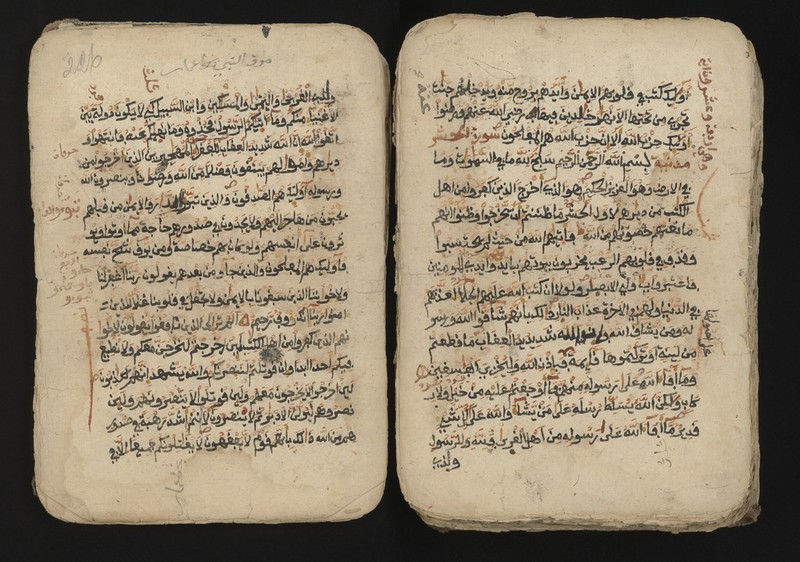 أوليك كتب في قلوبهم الايمن وايدهم بروح منه ويدخلهم جنت
تجري من تحتها الانهر خلدين فيها رضي الله عنهم ورضوا
اوليك حزب الله الا ان حزب الله هم المفلحون سورة الحشر
مدنية بسم الله الرحمن الرحيم سبح لله ما في السموت وما
في الارض وهو العزيز الحكيم هو الذي اخرج الذين كفروا من اهل
الكتب من ديرهم لاول الحشر ما ظننتم ان يخرجوا وظنوا انهم
مانعتهم حصونهم من الله فاتيهم الله من حيث لم يحتسبوا
وقذف في قلوبهم الرعب يخربون بيوتهم بايديهم وايدي المومنين
فاعتبروا ياولي الابصر ولولا ان كتب الله عليهم الجلا لعذبهم
في الدنيا ولهم في الاخرة عذاب النار ذلك بانهم شاقوا الله ورسو
له ومن يشاق الله فان الله شديد العقاب ما قطعتم
من لينة او تركتموها قايمة فباذن الله وليخزي الفسقين
وما افا الله على رسوله منهم فما اوجفتم عليه من خيل ولا ر
كاب ولكن الله يسلط رسله على من يشا والله على كل شي
قدير ما افا الله على رسوله من اهل القرى فلله وللرسول
ولذي
ولذي القربى واليتمى والمسكين وابن السبيل كي لا يكون دولة بين
الاغنيا منكم وما اتيكم الرسول فخذوه وما نهيكم عنه فانتهوا و
اتقوا الله ان الله شديد العقاب للفقرا المهجرين الذين اخرجوا من
ديرهم واموالهم يبتغون فضلا من الله ورضونا وينصرون الله
ورسوله اوليك هم الصدقون والذين تبوو الدار والايمن من قبلهم
يحبون من هاجر اليهم ولا يجدون في صدورهم حاجة مما اوتوا ويو
ثرون على انفسهم ولو كان بهم خصاصة ومن يوق شح نفسه
فاوليك هم المفلحون والذين جاو من بعدهم يقولون ربنا اغفر لنا
ولاخوننا الذين سبقونا بالايمن ولا تجعل في قلوبنا غلا للذين
امنوا ربنا انك روف رحيم الم تر الى الذين نافقوا يقولون لاخوا
نهم الذين كفروا من اهل الكتب لين اخرجتم لنخرجن معكم ولا نطيع
فيكم احدا ابدا وان قوتلتم لننصرنكم والله يشهد انهم لكذبون
لين اخرجوا لا يخرجون معهم ولين قوتلوا لا ينصرونهم ولين
نصروهم ليولن الادبر ثم لا ينصرون لانتم اشد رهبة في صدور
هم من الله ذلك بانهم قوم لا يفقهون لا يقتلونكم جميعا الا في